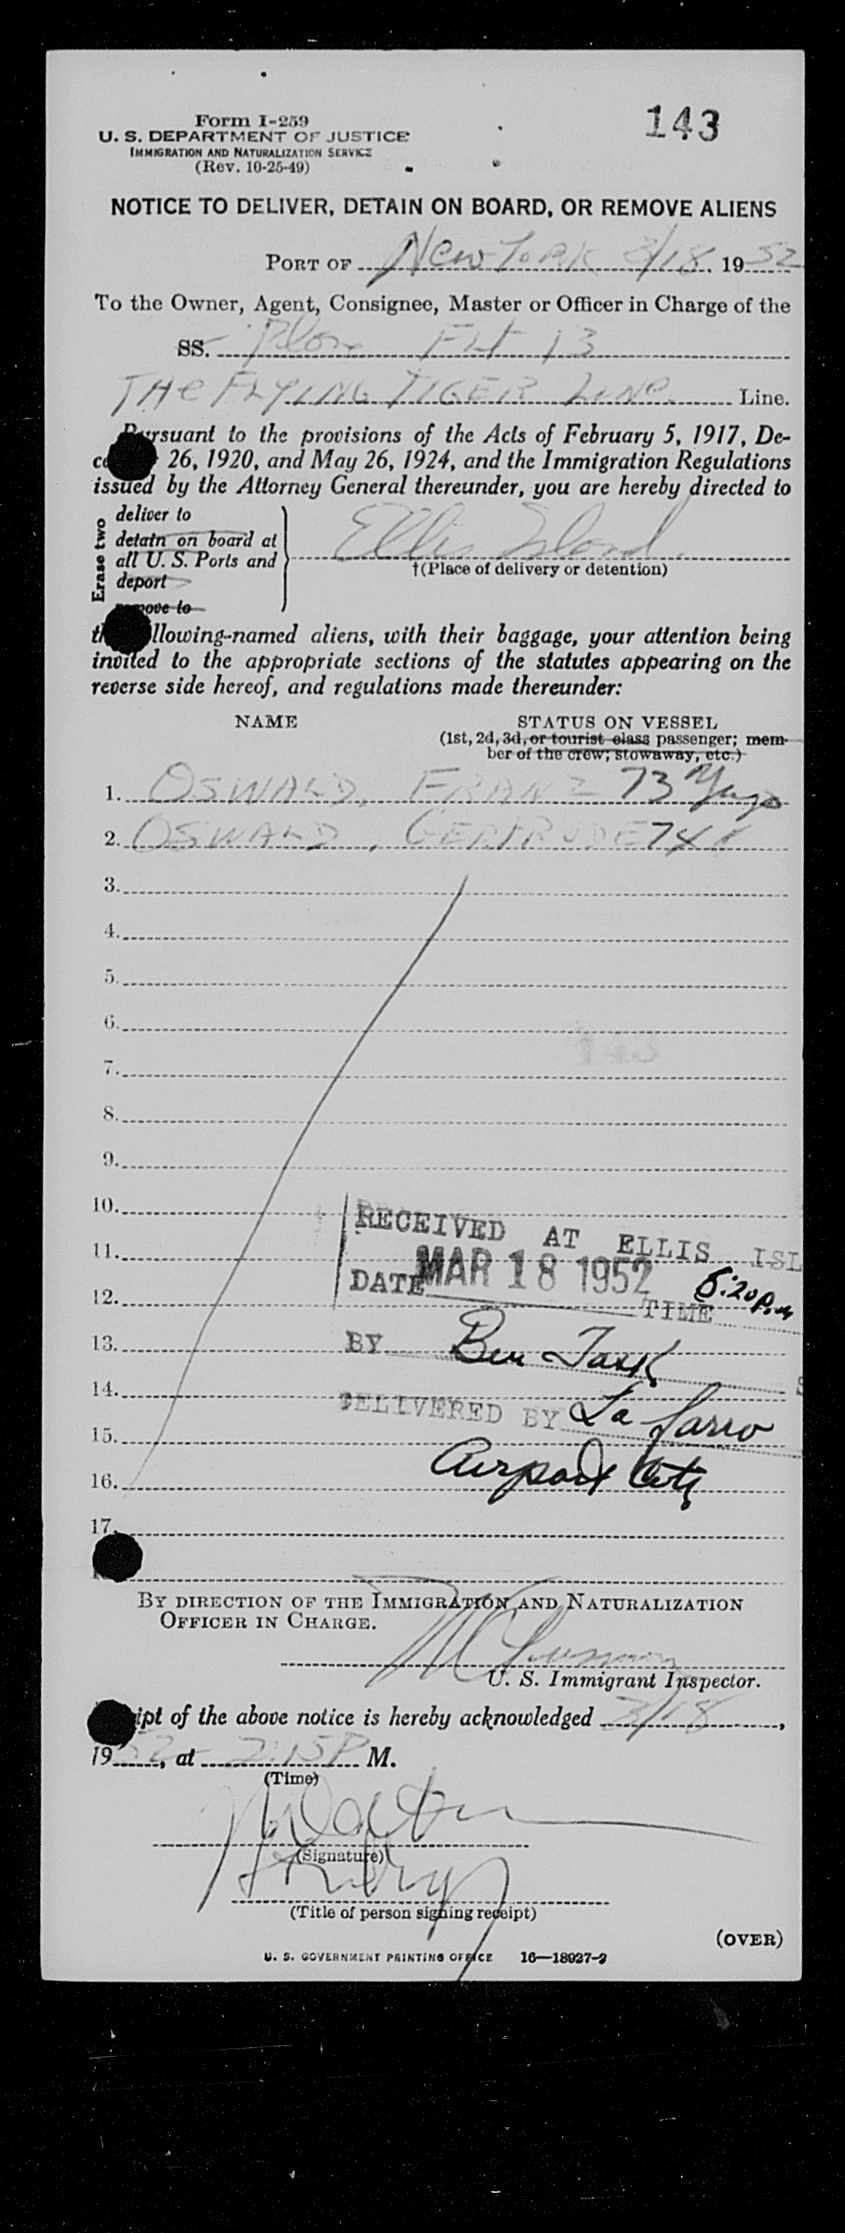 Form I-259
U. S. DEPARTMENT OF JUSTICE
IMMIGRATION AND NATURALIZATION SERVICE
(Rev. 10-25-49)
143
NOTICE TO DELIVER, DETAIN ON BOARD, OR REMOVE ALIENS
PORT OF New York 3/18, 1952
To the Owner, Agent, Consignee, Master or Officer in Charge of the
SS. Flt 13
THE FLYING TIGER LINE Line.
Pursuant to the provisions of the Acts of February 5, 1917, De-
26, 1920, and May 26, 1924, and the Immigration Regulations
issued by the Attorney General thereunder, you are hereby directed to
Erase two
deliver to
detain on board at
all U. S. Ports and
deport
remove to
Ellis Island.
†(Place of delivery or detention)
following-named aliens, with their baggage, your attention being
invited to the appropriate sections of the statutes appearing on the
reverse side hereof, and regulations made thereunder:
NAME
STATUS ON VESSEL
(1st, 2d, 3d, or tourist class passenger; mem-
ber of the crew; stowaway, etc.)
1. OSWALD, FRANZ 73 Yugo
2. OSWALD, GERTRUDE 74 "
3.
4.
5.
6.
143
7.
8.
9.
10.
RECEIVED AT ELLIS ISL
11.
DATE MAR 18 1952 TIME 5:20 P.M
12.
13.
BY Ben
14.
DELIVERED BY La
15.
Airport
16.
17.
BY DIRECTION OF THE IMMIGRATION AND NATURALIZATION
OFFICER IN CHARGE.
U. S. Immigrant Inspector.
ipt of the above notice is hereby acknowledged 3/18,
1952, at 2:15 P M.
(Time)
(Signature)
(Title of person signing receipt)
(OVER)
U. S. GOVERNMENT PRINTING OFFICE 16—18927-2